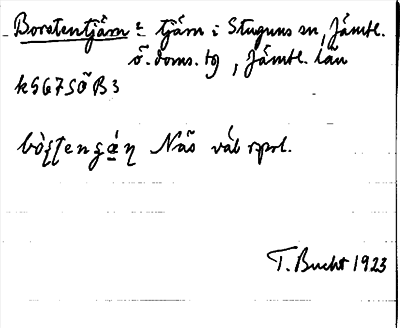 Borstentjärn = tjärn i Stuguns sn, Jämtl.
ö. doms. tg, Jämtl. län
k5675ÖB3
Näs väb spol.
T. Bucht 1923